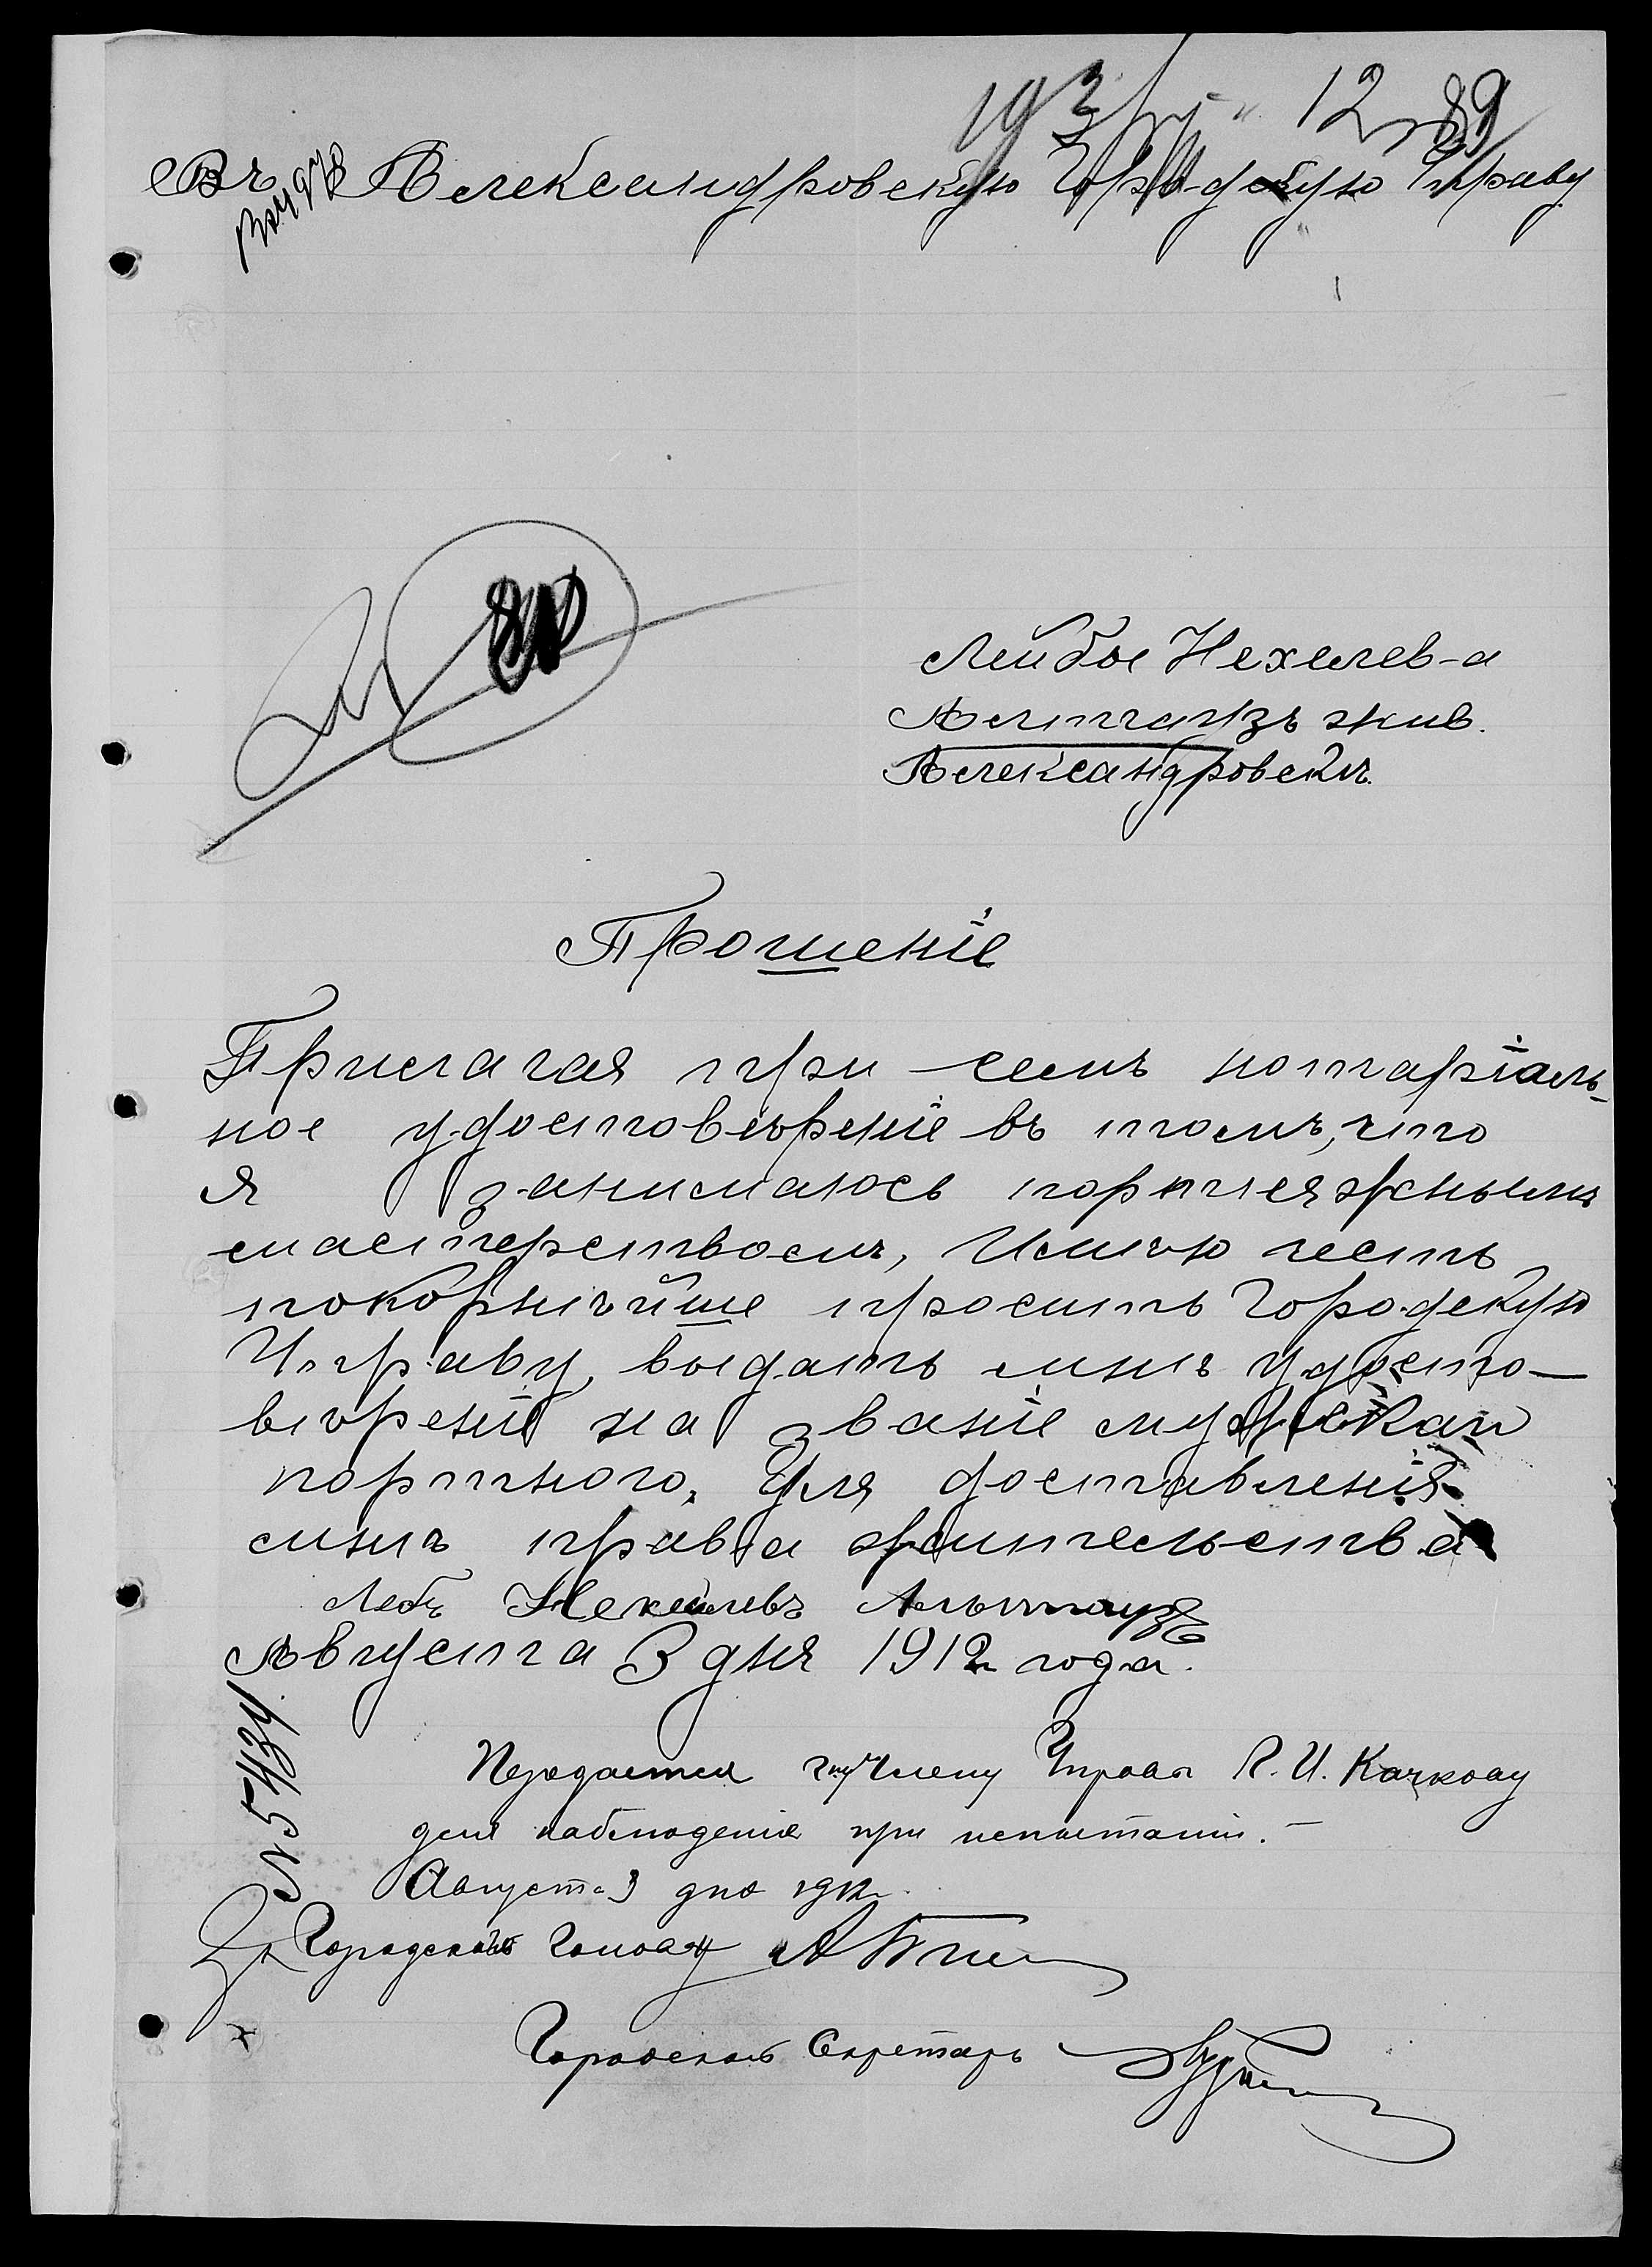 193 12 89
Въ Александровскую Городскую Управу
Лейбы Нехелев-а
Альтгаузъ жив.
Александровскѣ.
Прошеніе
Прилагая при семъ нотаріаль-
ное удостовѣреніе въ томъ, что
я занимаюсь портняжнымъ
мастерствомъ, Имѣю честь
покорнѣйше просить Городскую
Управу, выдать мнѣ удосто-
вѣреніе на званіе мужскаго
портнаго, для доставленія
мнѣ права жительства
Лейб Нехелевъ Альтгаузъ
Августа 3 дня 1912 года.
№ 5434
Передается г-ну Члену Управы П. И. Качкову
для наблюденія при испытаніи.-
Августа 3 дня 1912 г.
За Городского Голову
Городской Секретарь